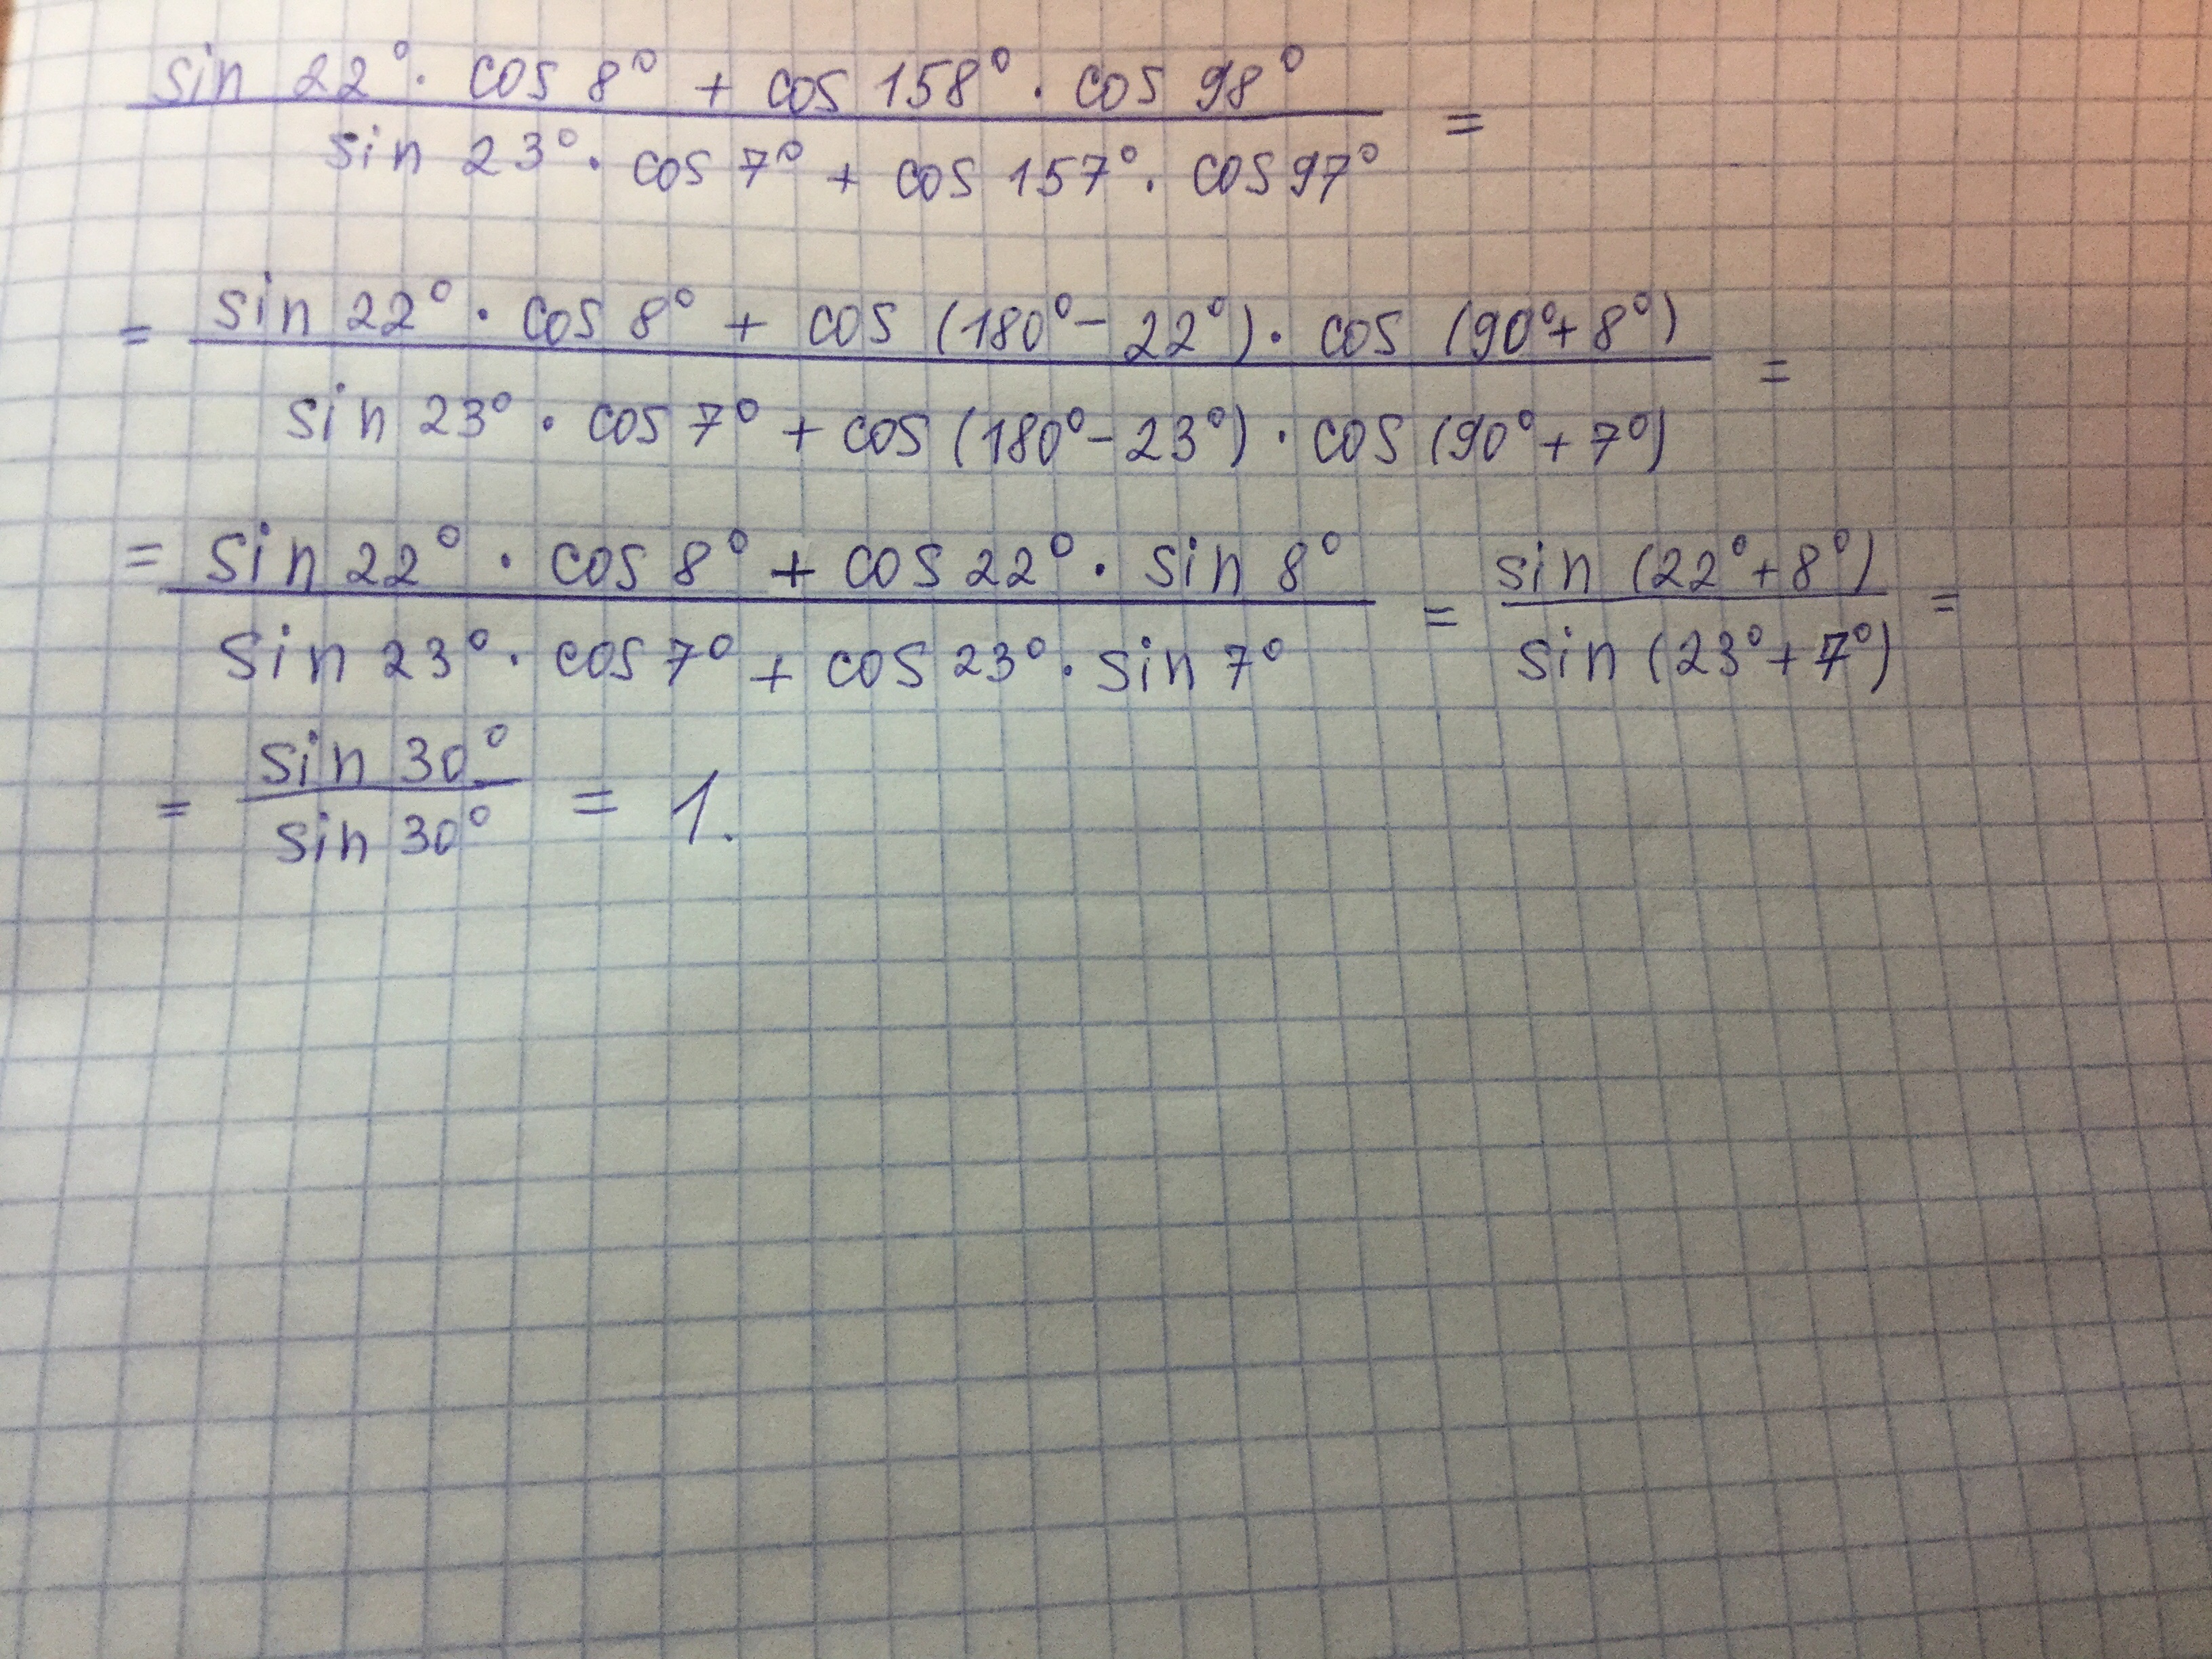 sin 22° · cos 8° + cos 158° · cos 98°
sin 23° · cos 7° + cos 157° · cos 97° =
= sin 22° · cos 8° + cos (180° - 22°) · cos (90° + 8°)
sin 23° · cos 7° + cos (180° - 23°) · cos (90° + 7°) =
= sin 22° · cos 8° + cos 22° · sin 8°
sin 23° · cos 7° + cos 23° · sin 7°
= sin (22° + 8°)
sin (23° + 7°) =
= sin 30°
sin 30° = 1.